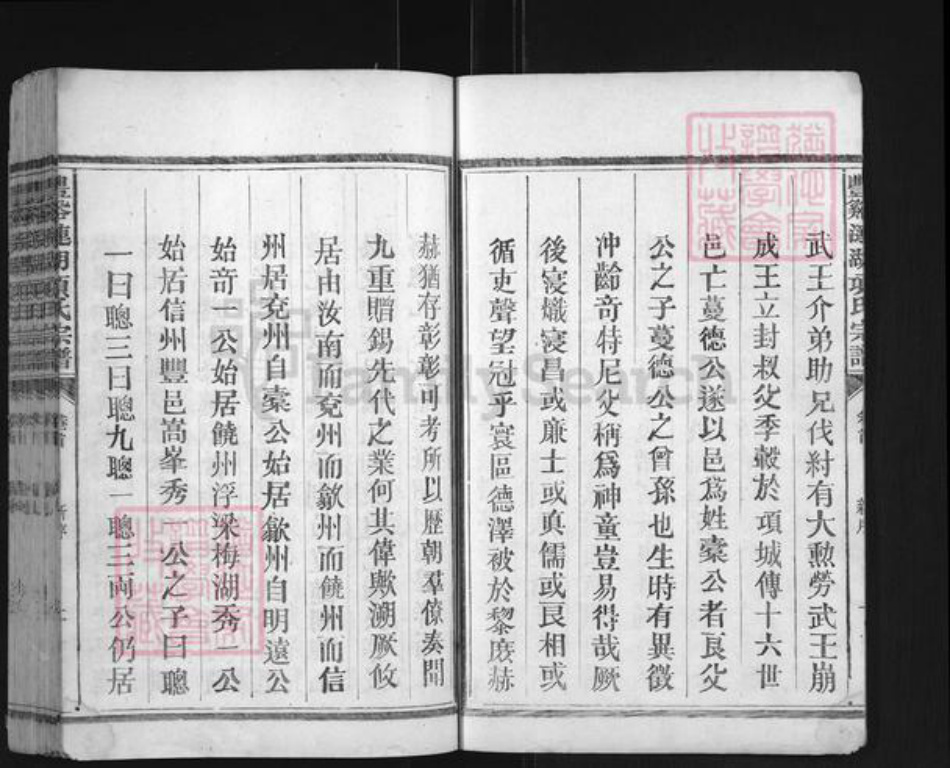 豐溪漣湖項氏宗譜
武王介弟助兄伐紂有大勲勞武王崩
成王立封叔父季縠於項城傳十六世
邑亡蔓德公遂以邑爲姓橐公者良父
公之子蔓德公之曾孫也生時有異徵
冲齡竒特尼父稱爲神童豈易得哉厥
後寖熾寖昌或廉士或眞儒或良相或
循吏聲望冠乎寰區德澤被於黎庶赫
赫猶存彰彰可考所以歷朝羣僚奏聞
九重贈錫先代之業何其偉歟溯厥攸
居由汝南而兗州而歙州而饒州而信
州居兗州自橐公始居歙州自明遠公
始竒一公始居饒州浮梁梅湖秀一公
始居信州豐邑嵩峯秀一公之子曰聰
一曰聰三曰聰九聰一聰三兩公仍居
豐溪漣湖項氏宗譜
卷首
FamilySearch